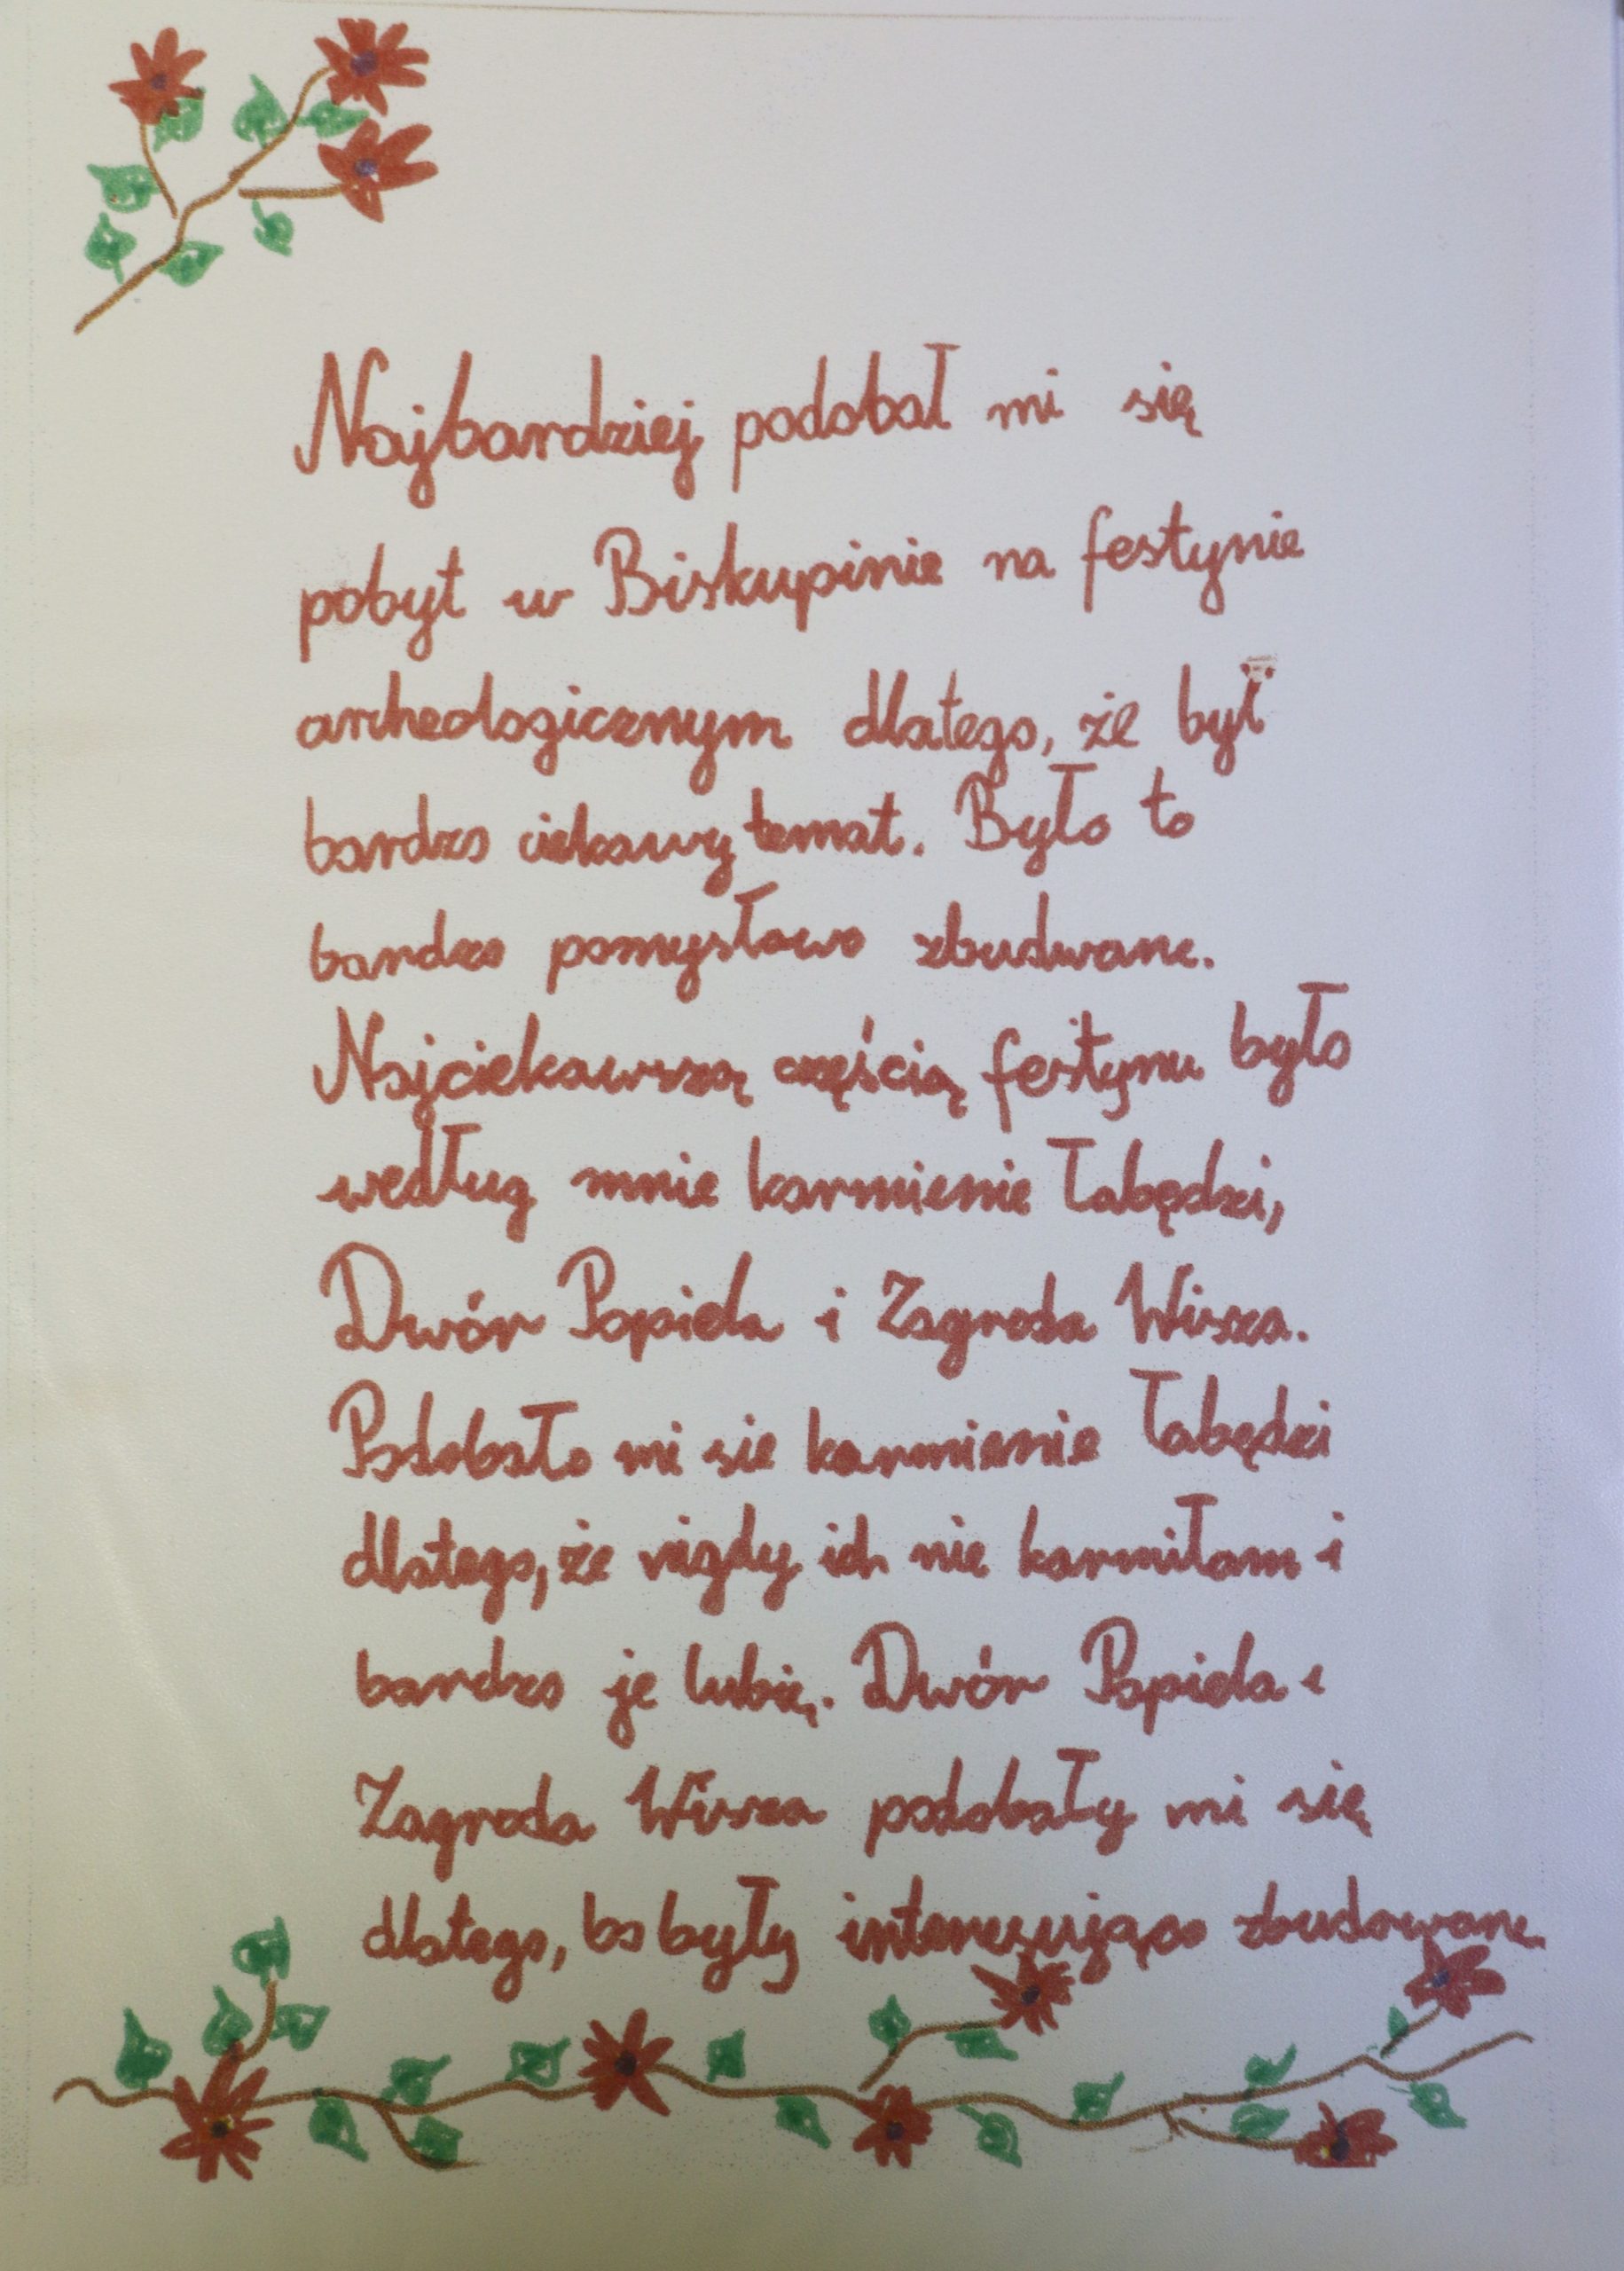 Najbardziej podobał mi się
pobyt w Biskupinie na festynie
archeologicznym dlatego, że był
bardzo ciekawy temat. Było to
bardzo pomysłowo zbudwane.
Najciekawszą częścią festynu było
według mnie karmienie łabędzi,
Dwór Popiela i Zagroda Wisza.
Podobało mi sie karmienie łabędzi
dlatego, że nigdy ich nie karmiłam i
bardzo je lubię. Dwór Popiela i
Zagroda Wisza podobały mi się
dlatego, bo były interesująco zbudowane.